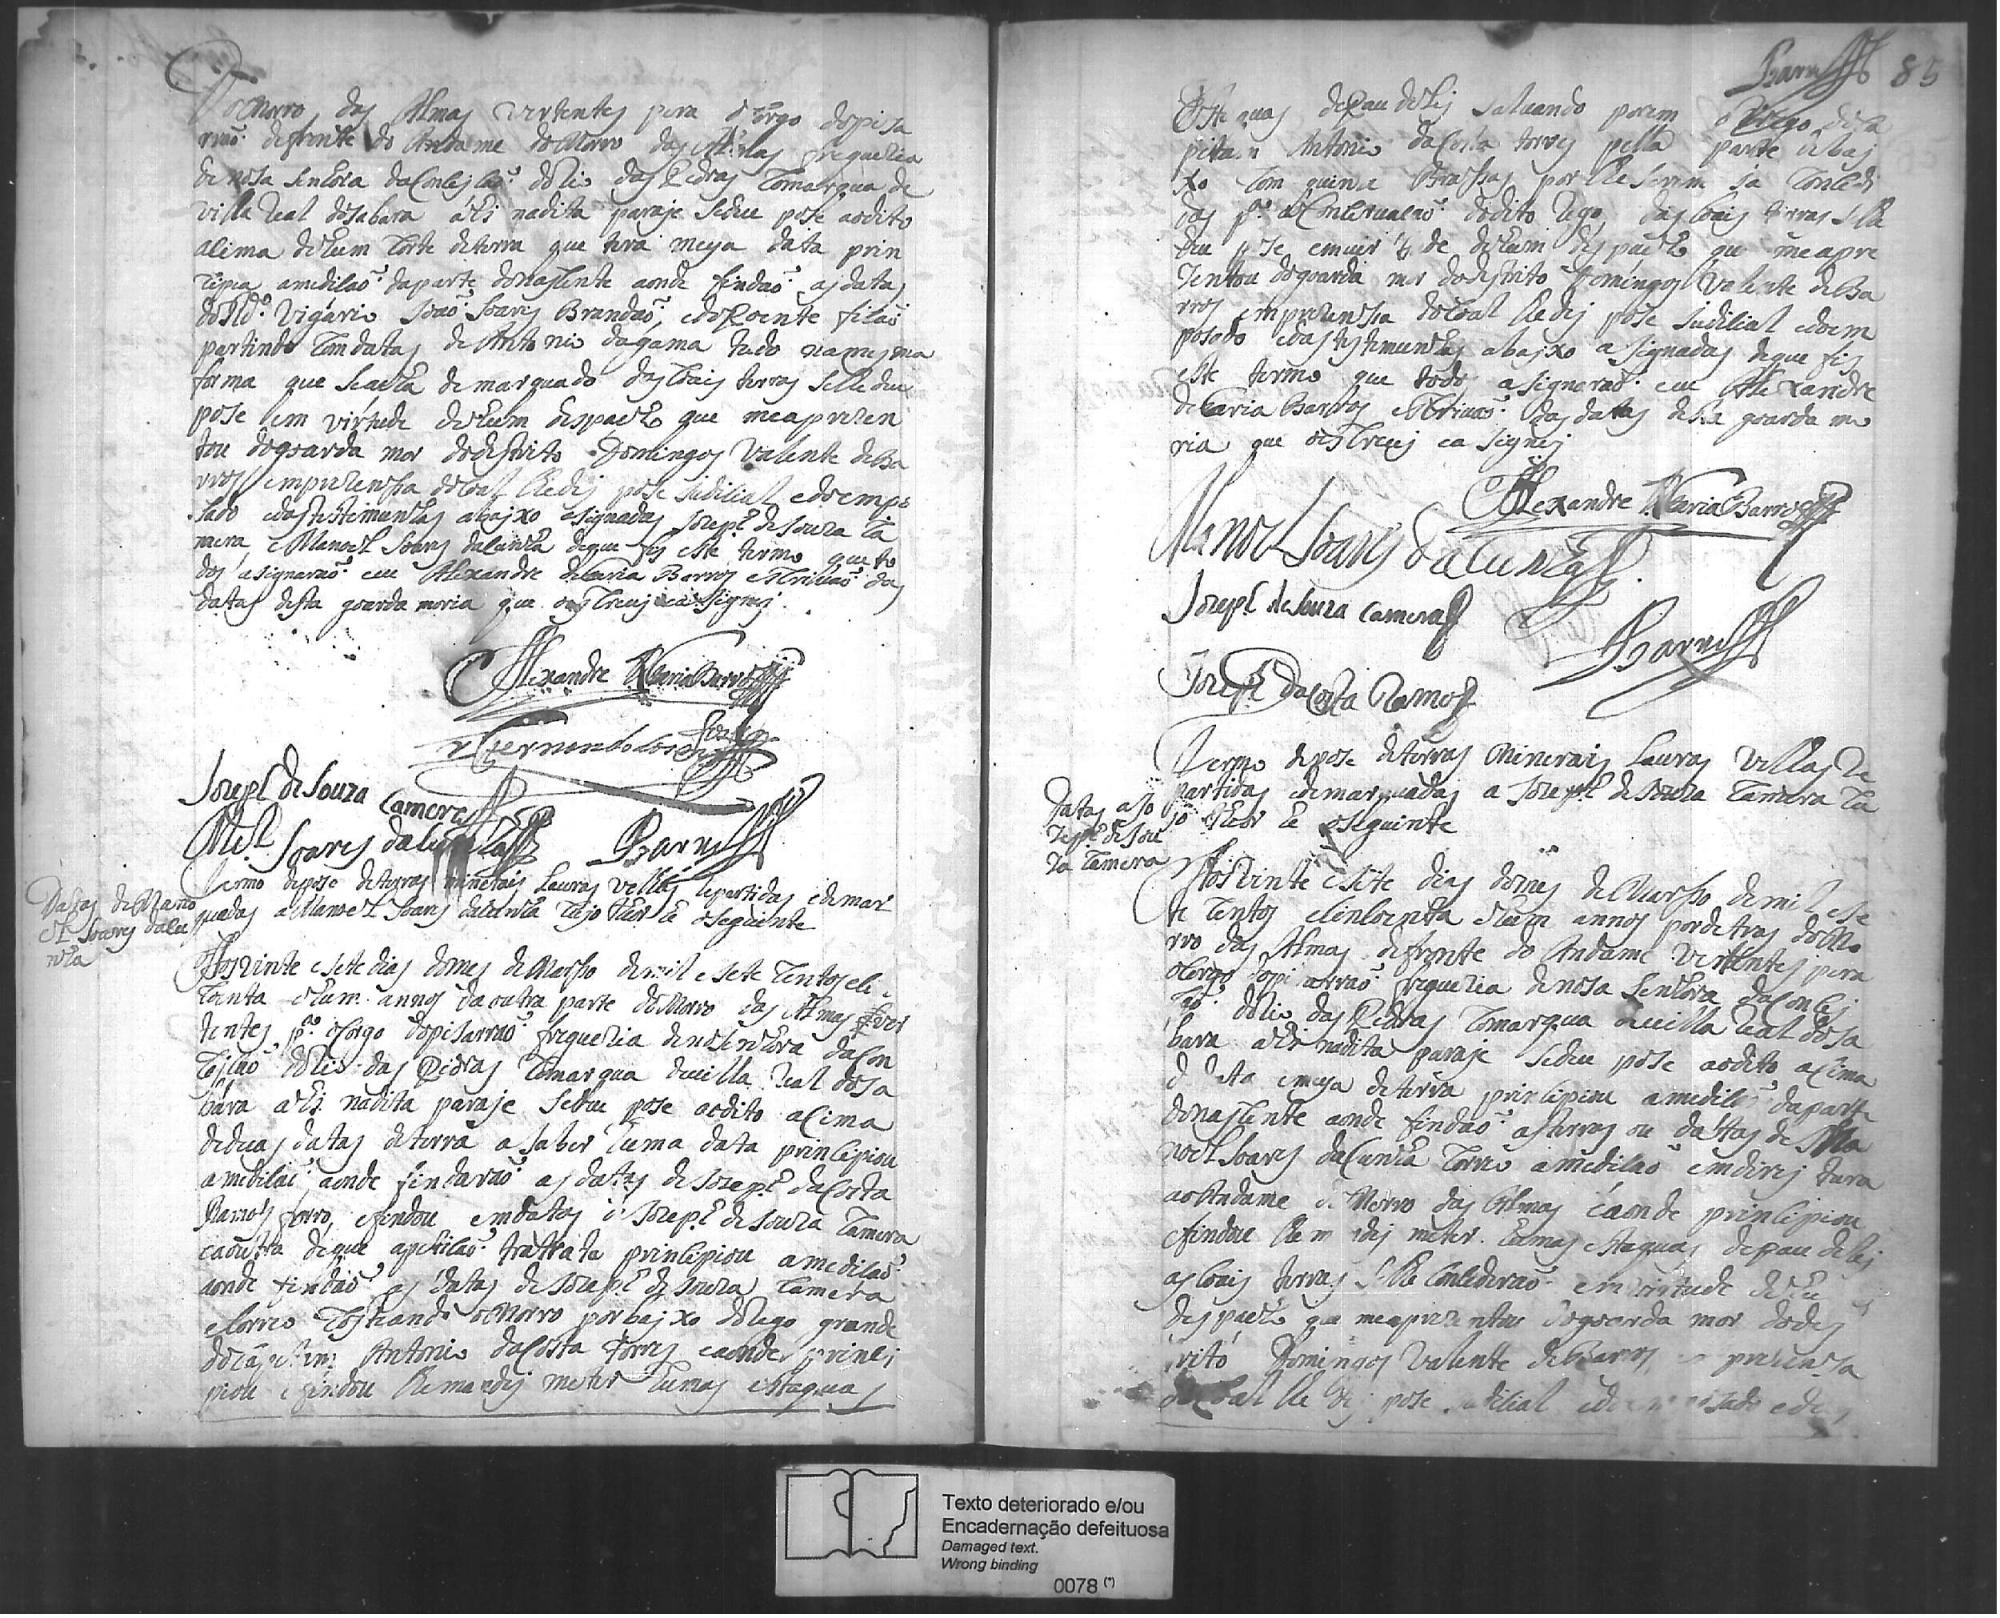 do Morro das Almas vertentes pera o corgo dopisa
rraõ defronte do Andame do Morro das Almas freguezia
de nosa senhora da Conseiçaõ do Rio das Pedras Comarqua de
villa Real dosabara ahi nadita paraje sedeu pose aodito
asima de hum Corte deterra que tera meya data prin
sipia amediçaõ daparte donasente aonde findaõ as datas
do Rdo. Vigario Joaõ Soares Brandaõ, edopoente ficaõ
partindo Com datas de Antonio dagama tudo namesma
forma que seacha demarquado das coais terras selhedeu
pose em virtude de hum despacho que meaprezen
tou doguarda mor dodestrito Domingos Valente deBa
rros emprezensa do coal lhedei pose Judisial edoempo
sado edastestemunhas abajxo asignadas Joseph de Souza Ca
mera, e Manoel Soares daCunha deque fis este termo que to
dos asignaraõ eeu Alexandre deFaria Barros escrivaõ das
datas desta goarda moria que oescrevj eaSignej
Alexandre Faria Barros
Joseph de Souza Camera
Mel. Soares daCunha
Barros
Datas de Mano
el Soares daCu
nha
Termo depose deterras minerais lauras velhas repartidas edemar
quadas a Manoel Soares daCunha Cujo theor he oseguinte
Aos vinte esete dias domes deMarso demil esete sentos esi
coenta ehum annos da outra parte do Morro das Almas ver
tentes pa. o corgo dopisarraõ freguezia denosa senhora daCon
seiçaõ do Rio das Pedras Comarqua devilla Real dosa
bara ahi nadita paraje sedeu pose aodito asima
deduas datas deterra asaber huma data prinsipiou
amediçaõ aonde findaraõ as datas de Joseph daCosta
Ramos forro, efindou emdatas de Joseph de Souza Camera
eaoutra deque apetiçaõ trattata prinsipiou amediçaõ
aonde findaõ as datas de Joseph de Souza Camera
eCorreo Costeando oMorro porbajxo doRego grande
doCapitam Antonio daCosta torres eaonde prinsi
piou efindou lhemandej meter humas estaquas
Barros 85
Estaquas depau delej salvando porem o Rego doCa
pitam Antonio daCosta torres pella parte debaj
xo Com quinze Brassas por lheserem ja Consedi
das pa. aConservaçaõ dodito Rego das coais terras selhe
deu pose emvirtude dehum despacho que meapre
zentou doguarda mor dodestrito Domingos Valente deBa
rros emprezensa docoal lhedej pose Judisial edoem
posado edastestemunhas abajxo asignadas deque fis
este termo que todos asignaraõ eeu Alexandre
deFaria Barros escrivaõ das datas desta goarda mo
ria que oescrevej easignej
Alexandre Faria Barros
Manoel Soares daCunha
Joseph de Souza Camera
Barros
Joseph daCosta Ramos
Datas a Jo
zeph de Sou
za Camera
Termo depose deterras Minerais Lauras Velhas Re
partidas edemarquadas a Joseph de Souza Camera Cu
jo theor he oseguinte
Aos vinte esete dias domes de Marso demil ese
te sentos esincoenta ehum annos por detras doMo
rro das Almas defronte do Andame vertentes pera
o Corgo dopisarraõ freguezia denosa senhora daConsej
çaõ do Rio das Pedras Comarqua devilla Real dosa
bara ahi nadita paraje sedeu pose aodito asima
de data emeya deterra prinsipiou amediçaõ daparte
donasente aonde findaõ as terras ou dattas de Ma
noel Soares daCunha Correo amediçaõ endirej tura
aoAndame do Morro das Almas eaonde prinsipiou
efindou lhemandej meter humas estaquas depau delej
as coais terras selhe Consederaõ emvirtude dehu
despacho que meaprezentou doguarda mor dodes
trito Domingos Valente deBarros, em prezensa
docoal lhe dej pose Judisial edoemposado edas
Texto deteriorado e/ou
Encadernação defeituosa
Damaged text.
Wrong binding
0078 (*)